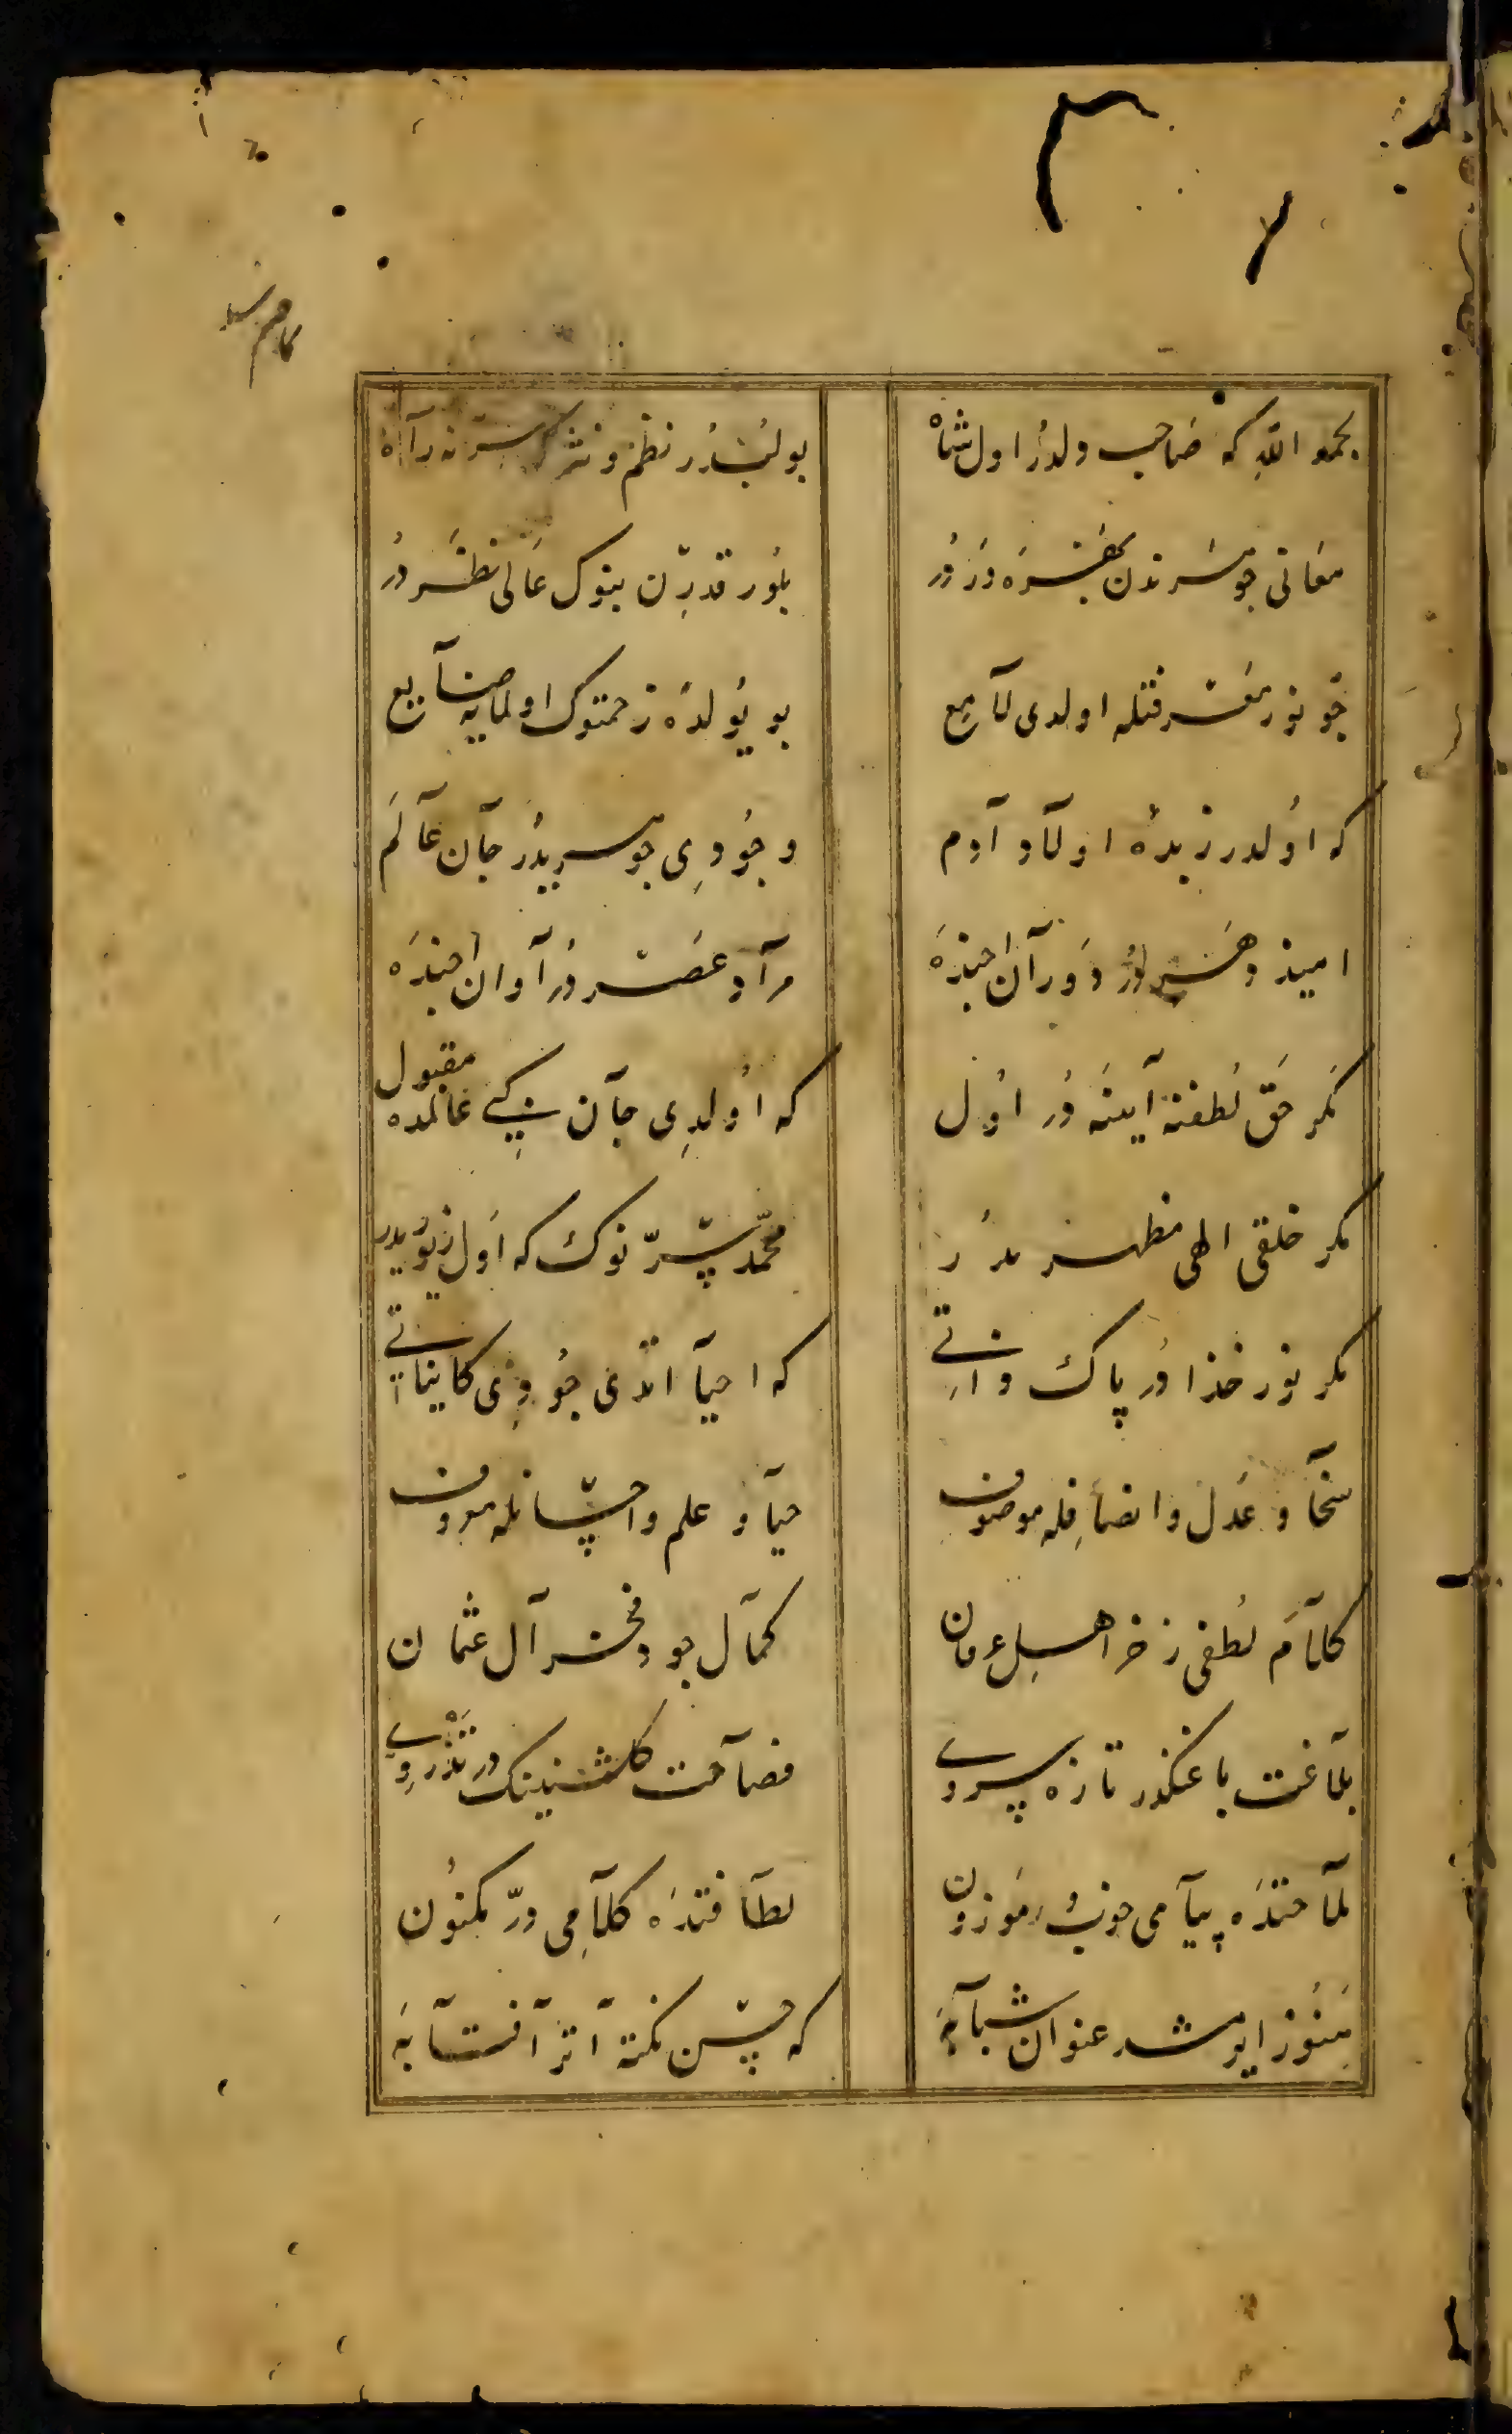 بحمد اللّه که صاحب ولدُر اول شاه
بولبدُر نظم و نثر سرّنه رآه
معانی جوهرندن بهره وردُر
بلور قدرِن بنوک عالی نظردُر
چو نور معرفتله اولدی لآمع
بو یولده زحمتوک اولمایه ضآیع
که اولدر زبدهٔ اولآد آدم
وجُودِی جوهریدُر جآن عآلم
امید دهردُر دَورآن ایچنده
مرآد عصردُر آوان ایچنده
مگر حَق لُطفنه آیینه دُر اول
که اولدِی جآن کِبی عالمده مقبول
مگر خلقی الهی مظهریدُر
محمّد سرّینوک که اول زیوریدر
مگر نور خدادُر پاک ذاتی
که احیآ اتدی جُودِی کایناتی
سخآ و عَدل و انصافِله موصوف
حیآ و علم و احسانله معروف
کلام لُطفی ذخر اهل عرفان
کمآل جود و فخر آل عثمان
بلآغت باغنکدر تازه سروی
فصآحت گلشنینک در تذروِی
ملآحتده پیآمی خوب و موزون
لطآفتده کلآمِی درّ مکنُون
هنُوز ایرمشدر عنوان شبآبه
که حسن نکته آتر آفتآبه